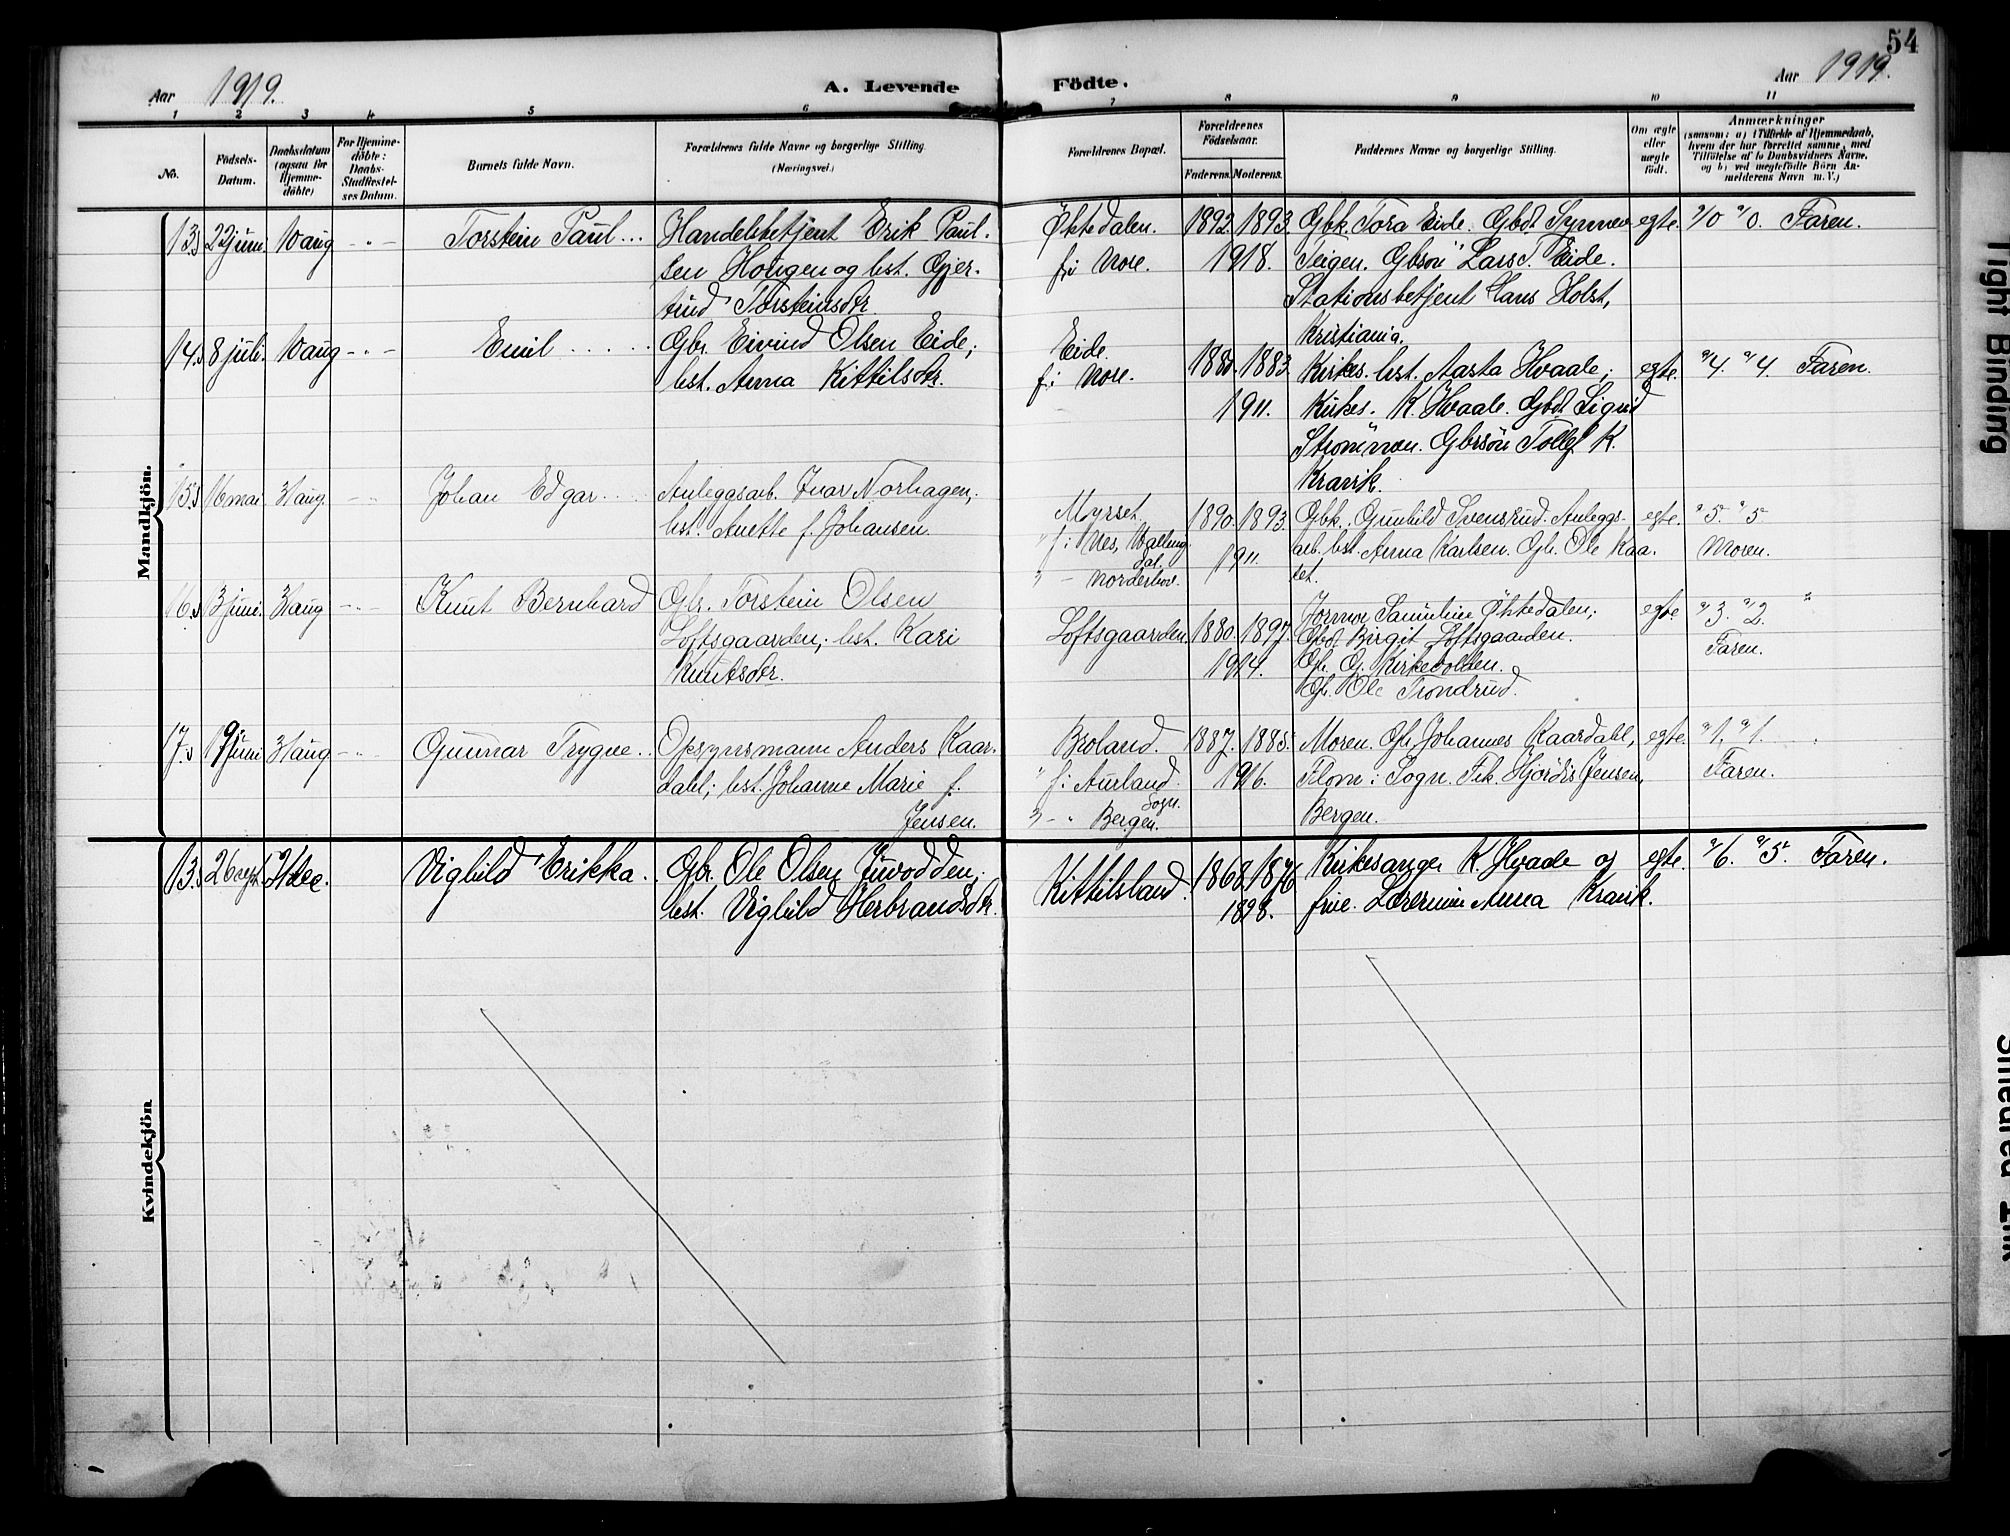 54
Aar 1919.
A. Levende Födte.
Aar 1919.
1 2 3 4 5 6 7 8 9 10 11
No.
Födsels-
Datum.
Daabsdatum
(ogsaa for
Hjemme-
döbte)
For Hjemme-
döbte:
Daabs-
Stadfæstel-
ses Datum.
Barnets fulde Navn.
Forældrenes fulde Navne og borgerlige Stilling.
(Næringsvei.)
Forældrenes Bopæl.
Forældrenes
Födselsaar.
Faderens. Moderens.
Faddernes Navne og borgerlige Stilling.
Om ægte
eller
uægte
födt.
Anmærkninger
(saasom: a) i Tilfælde af Hjemmedaab,
hvem der har forrettet samme, med
Tilføielse af to Daabsvidners Navne,
og b) ved uegtefødte Börn An-
melderens Navn m. V.)
Mandkjön.
13.s 22 juni 10 aug - " - Torstein Paul ...
Handelsbetjent Erik Paul-
sen Hougen og hst. Gjer-
trud Torsteinsdtr.
Øktedalen.
f. i Nore.
1892. 1893.
1918.
Gbk. Tora Eide. Gbdt. Synnev
Teigen. Gbsön Lars T. Eide.
Stationsbetjent Hans Holst,
Kristiania.
egte. 0 0. Faren.
14.s 8 juli. 10 aug - " - Emil .....
Gbr. Eivind Olsen Eide;
hst. Anna Kittilsdtr.
Eide.
f. i Nore.
1880. 1883
1911.
Kirkes. hst. Aasta Hvaale;
Kirkes. K. Hvaale. Gbdt. Sigrid
Strömmen. Gbrsön Tollef K.
Kravik.
egte. 4. 4. Faren.
15.s 16 mai 31 aug. - " - Johan Edgar ....
Anleggsarb. Ivar Norhagen;
hst. Anette f. Johansen.
Myrset.
" f. i Nes, Halling-
dal.
" - Norderhov.
1890. 1893.
1911.
Gbk. Gunhild Svensrud. Anleggs-
arb. hst. Anna Karlsen. Gbr. Ole Kaa-
set.
egte. 5. 5
Moren.
16.s 3 juni. 31 aug - " - Knut Bernhard
Gbr. Torstein Olsen
Loftsgaarden; hst. Kari
Knutsdtr.
Loftsgaarden.
1880. 1897.
1914.
Jormor Samuline Øktedalen;
Gbdt. Birgit Loftsgaarden.
Gbr. O. Kirkevolden.
Gbr. Ole Trondrud.
egte 3. 2.
Faren.
17.s 19 juni 31 aug - " - Gunnar Trygve..
Opsynsmann Anders Kaar-
dahl; hst. Johanne Marie f.
Jensen.
Broland.
" f. i Aurland
Sogn.
" - " Bergen.
1887. 1885.
1916.
Moren. Gbr. Johannes Kaardahl,
Flom i Sogn. Frk. Hjördis Jensen,
Bergen.
egte. 1, 1.
Faren.
Kvindekjön
13.s 26 sept. 21 dec. Vighild Erikka.
Gbr. Ole Olsen Juvodden;
hst. Vighild Herbrandsdtr.
Kittilsland.
1868. 1876
1898.
Kirkesanger K. Hvaale og
frue. Lærerinne Anna Kravik.
egte. 6. 5. Faren.
Tight Binding
Smeared Ink